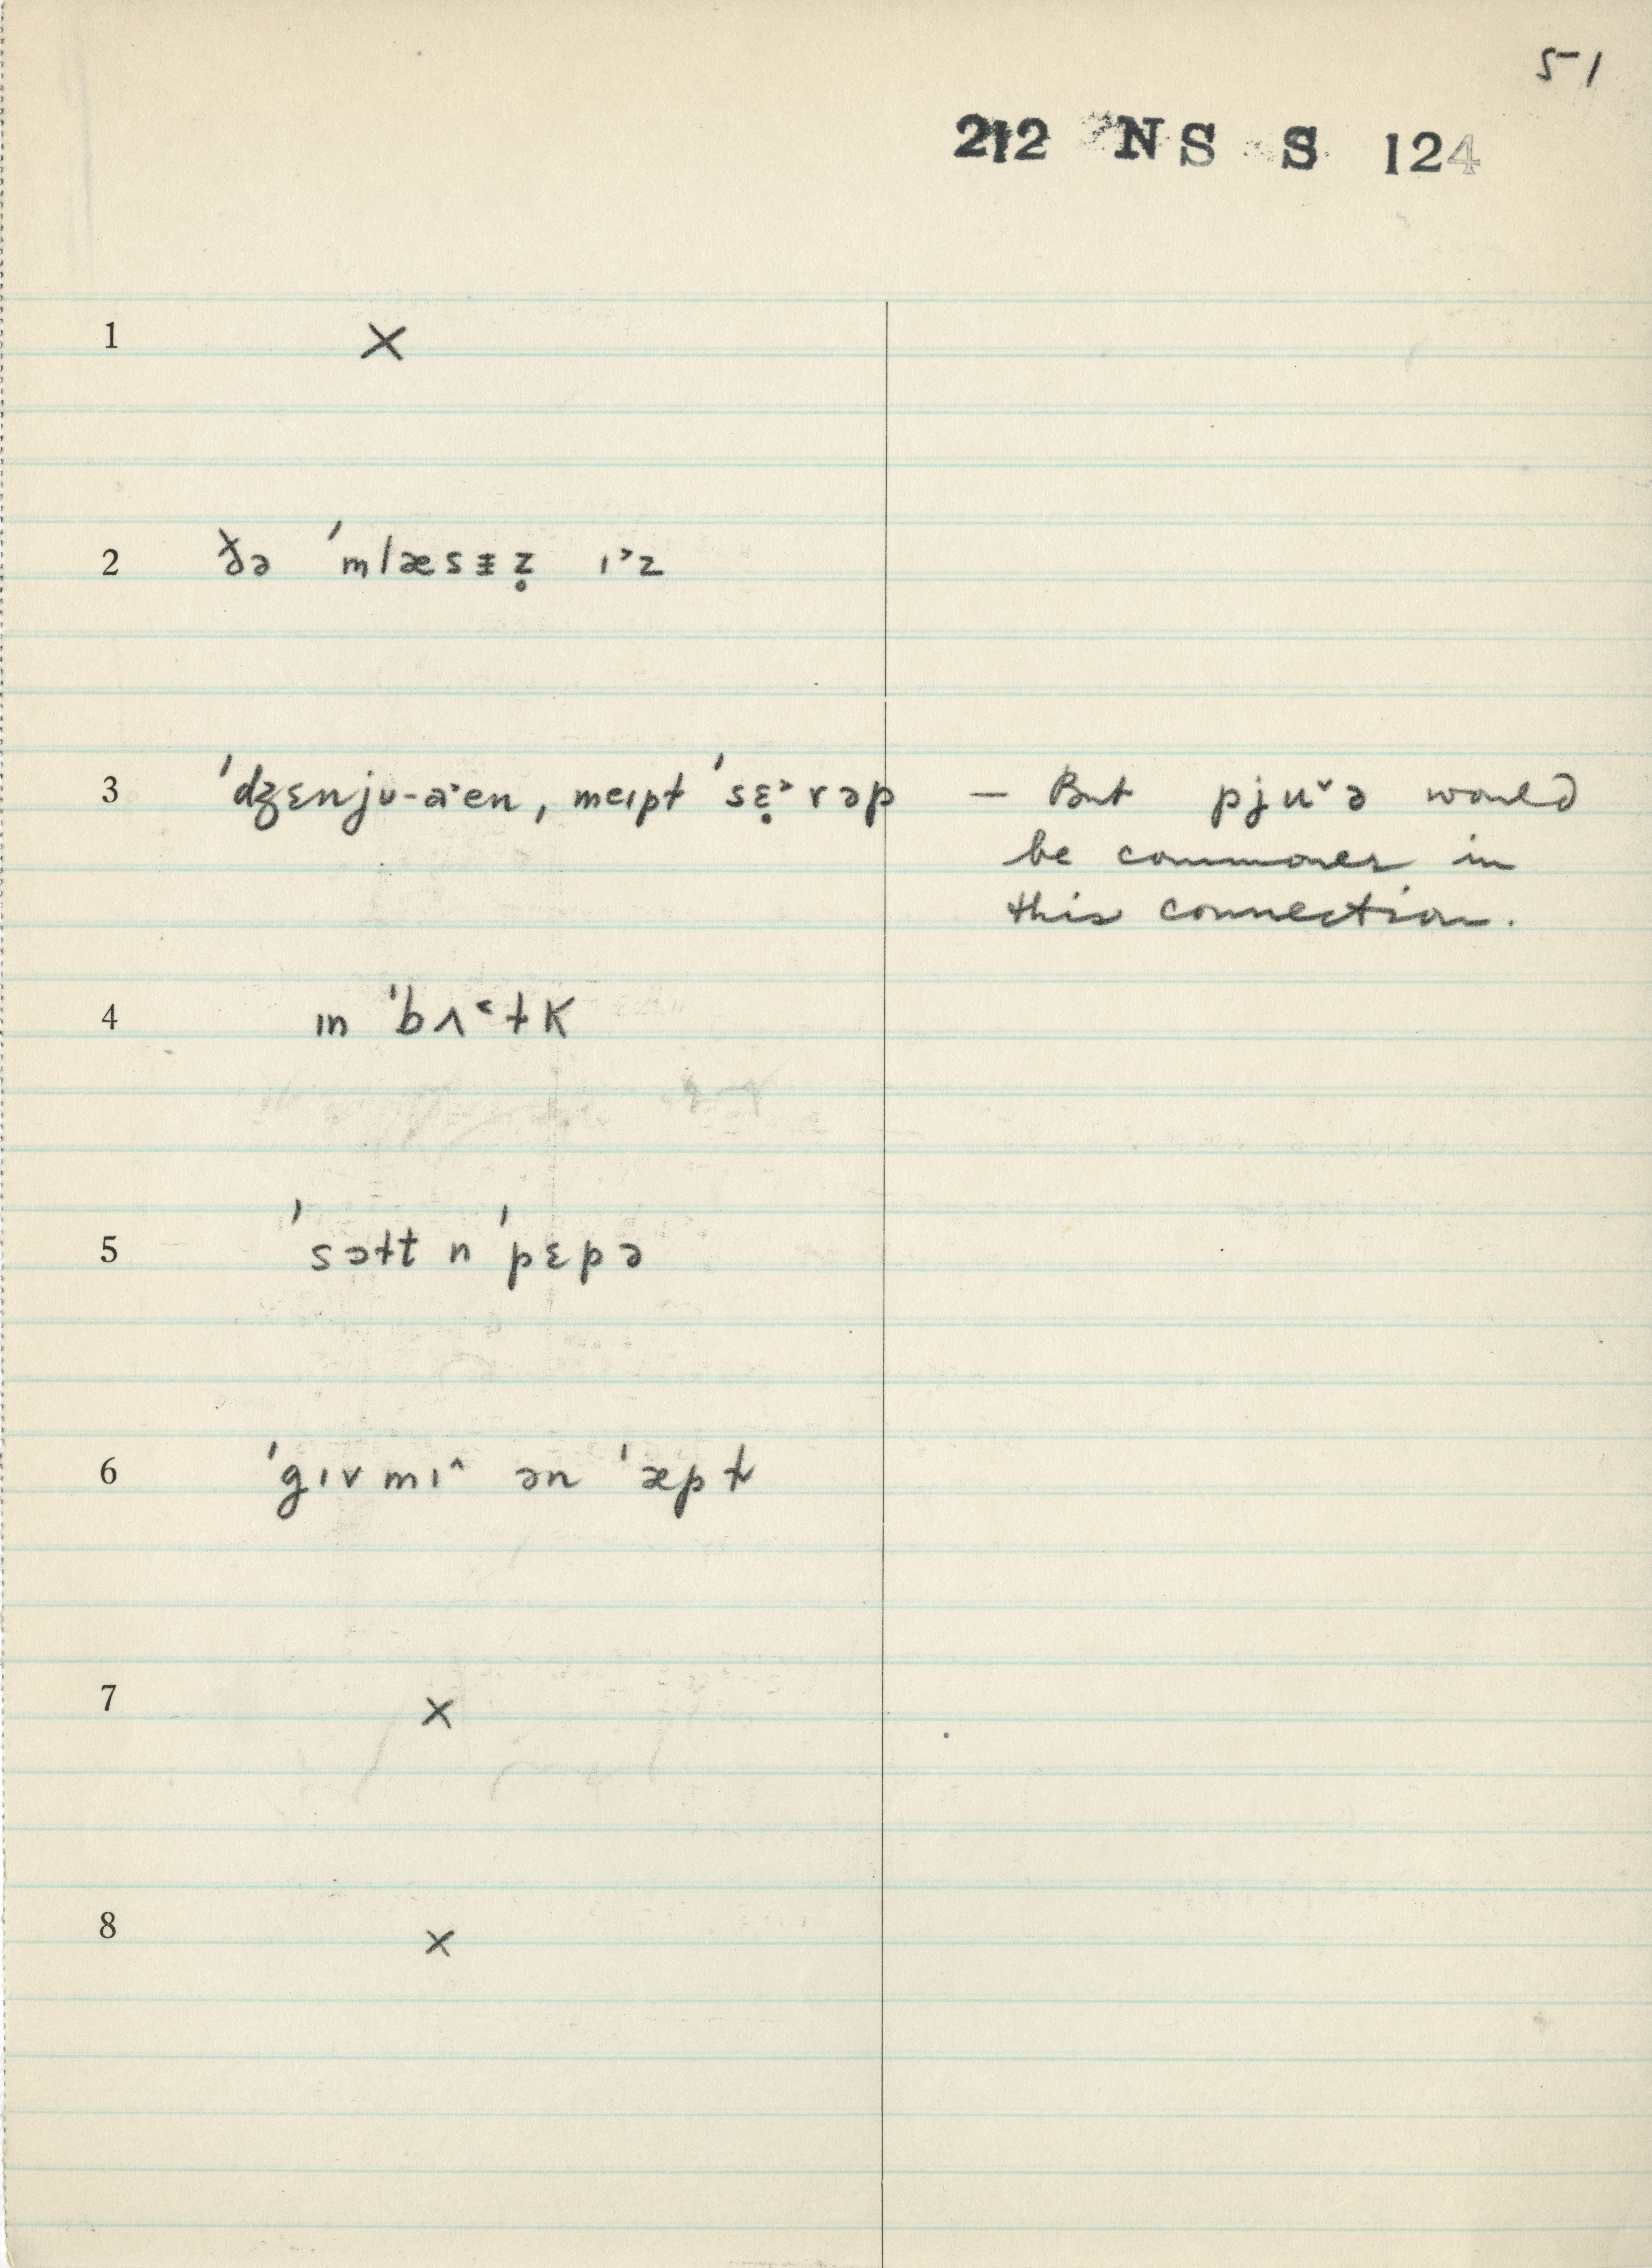 51
212 NS S 124
1 ×
2 ðə ˈmlæsɨz̥ ɪ˃z
3 ˈdʒɛnjʊ-aˑen, meɪpɫ ˈsɛ̣˃rəp — But pjuˇə would
be commoner in
this connection.
4 ɪn ˈbʌ˂ɫk
5 ˈsɔɫt n ˈpɛpə
6 ˈgɪv mɪ^ ən ˈæpɫ
7 ×
8 ×